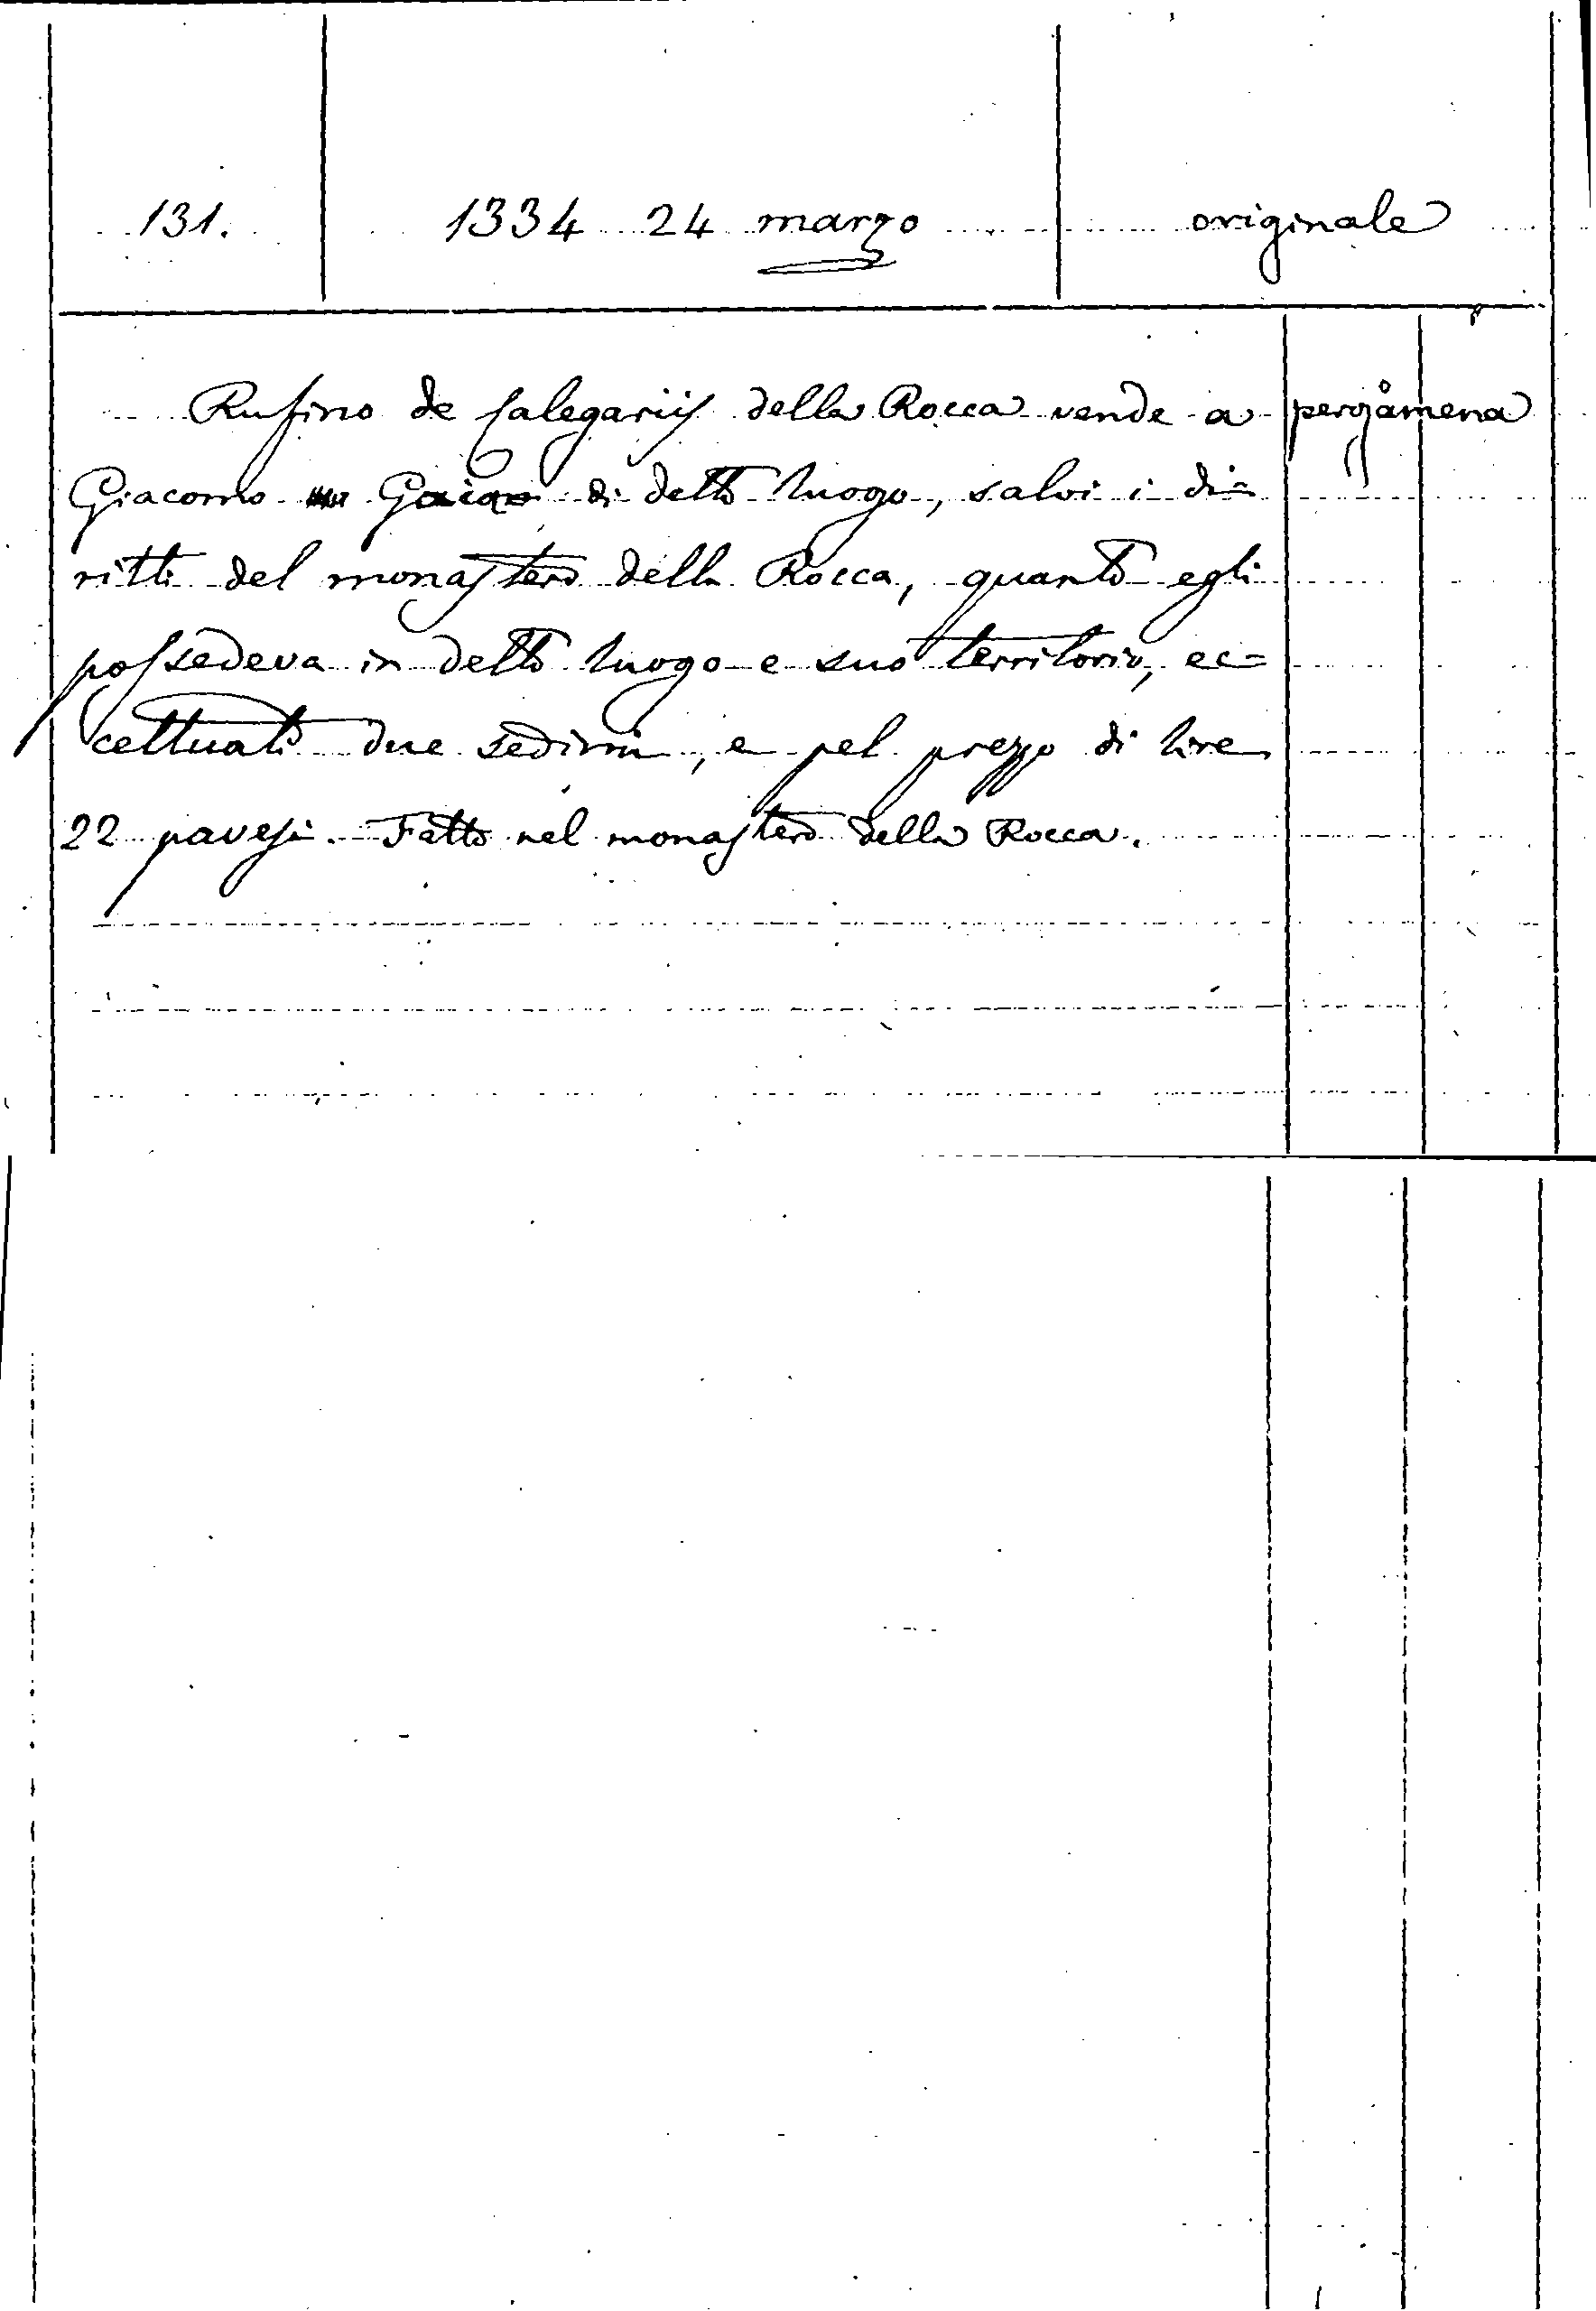 131. 1334 24 marzo originale
Rufino de Calegariis della Rocca vende a pergamena
Giacomo di detto luogo, salvi i di=
ritti del monastero della Rocca, quanto egli
possedeva in detto luogo e suo territorio, ec=
cettuati due sedimi, e pel prezzo di lire
22 pavesi. Fatto nel monastero della Rocca.